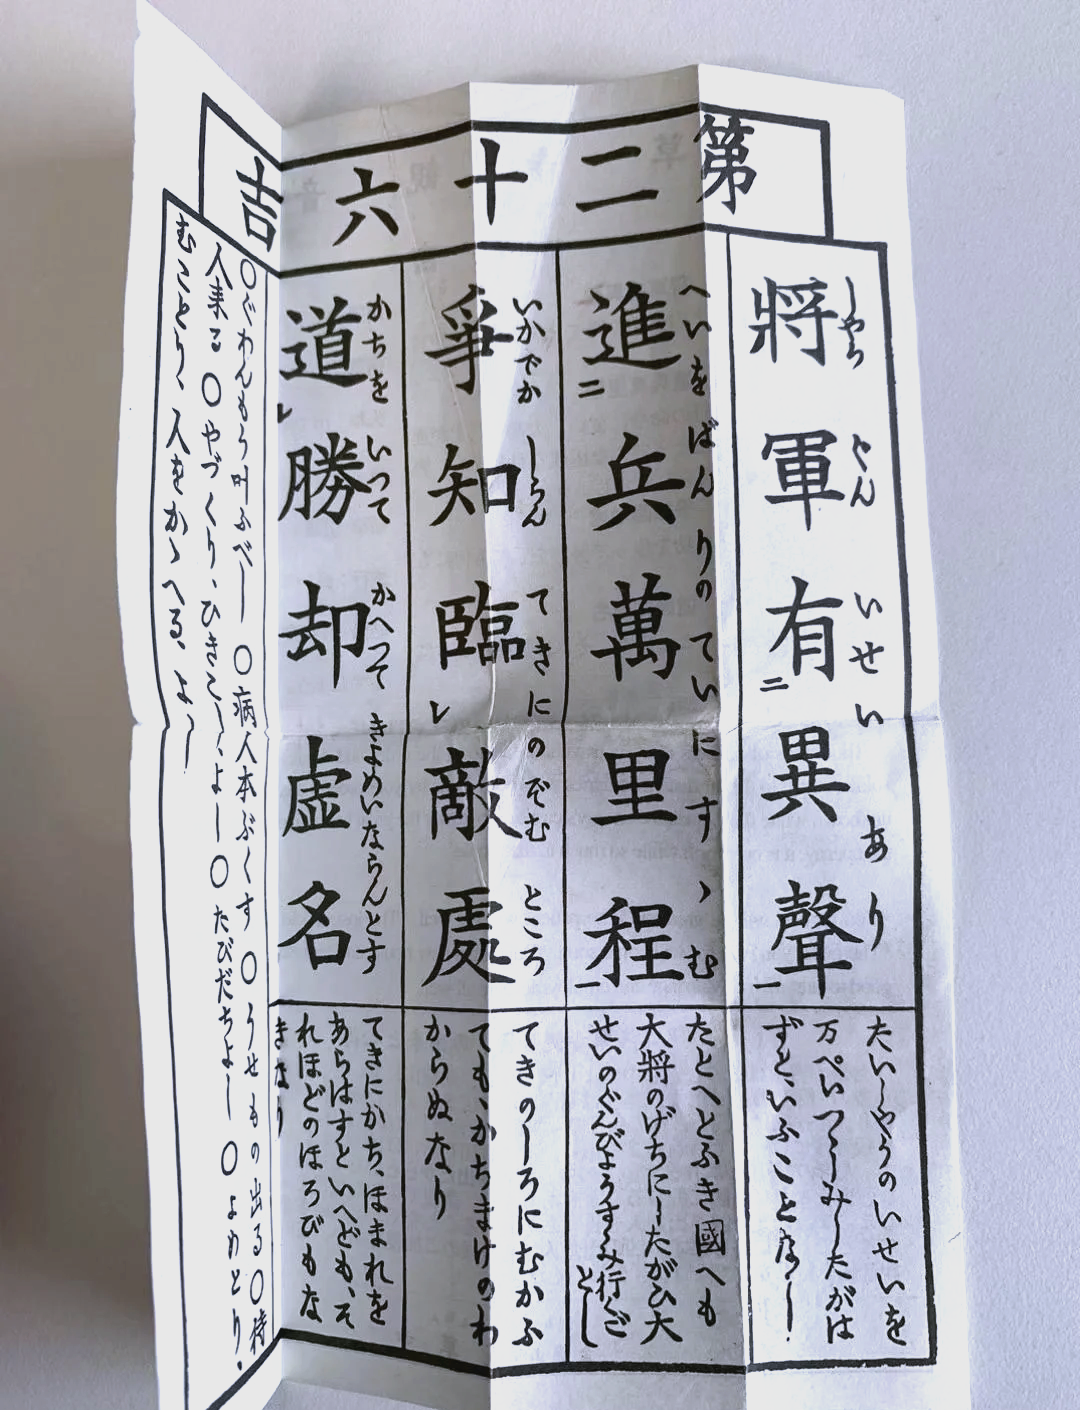 第二十六吉
將軍有二異聲一
しやうぐん いせい あり
たいしやうのいせいを
万ぺいつゝしみしたがは
ずと、いふことなし
進二兵萬里程一
へいを ばんりの ていに すゝむ
たとへとふき國へも
大將のげちにしたがひ大
せいのぐんびようすゝみ行ごとし
爭知臨レ敵處
いかでか しらん てきに のぞむ ところ
てきのしろにむかふ
ても、かちまけのわ
からぬなり
道レ勝却虚名
かちを いつて かへつて きよめいならんとす
てきにかち、ほまれを
あらはすといへども、そ
れほどのほろびもな
きなり
○ぐわんもう叶ふべし ○病人本ぶくす ○うせもの出る ○待
人来る ○やづくり、ひきこし、よし ○たびだちよし ○よめとり、
むことり、人をかゝへる、よし